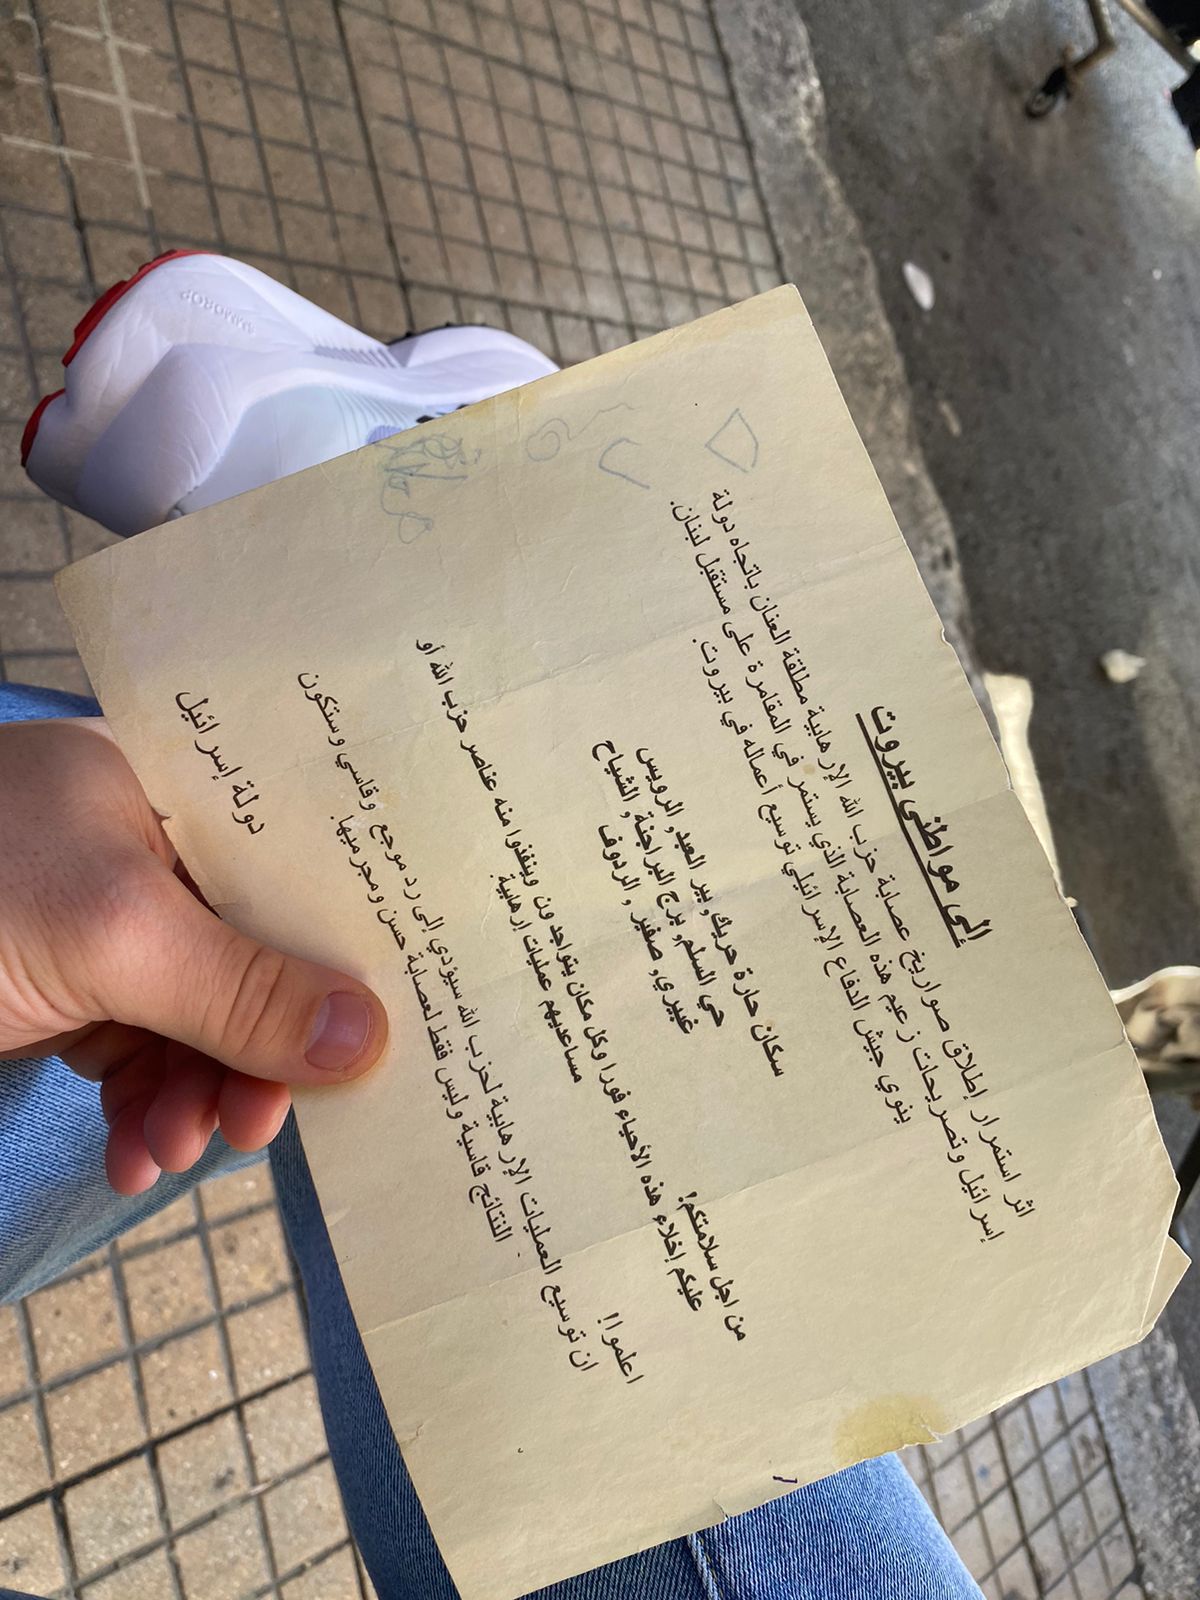 إلى مواطني بيروت
اثر استمرار إطلاق صواريخ عصابة حزب الله الإرهابية مطلقة العنان باتجاه دولة
إسرائيل وتصريحات زعيم هذه العصابة الذي يستمر في المقامرة على مستقبل لبنان.
ينوي جيش الدفاع الإسرائيلي توسيع أعماله في بيروت.
سكان حارة حريك, بير العبد, الرويس
حي السلم, برج البراجنة, الشياح
غبيري, صفير, الردوف
من اجل سلامتكم!
عليكم إخلاء هذه الأحياء فورا وكل مكان يتواجدون وينفذوا منه عناصر حزب الله أو
مساعديهم عمليات إرهابية.
اعلموا!!
ان توسيع العمليات الإرهابية لحزب الله سيؤدي إلى رد موجع وقاسي وستكون
النتائج قاسية وليس فقط لعصابة حسن ومجرميها.
دولة إسرائيل